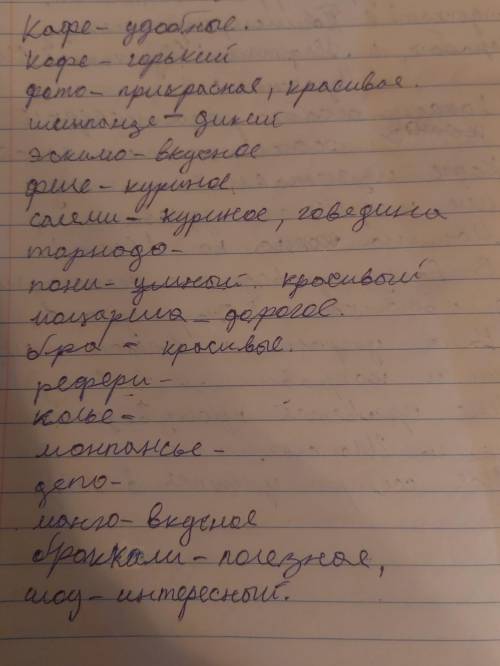 Кафе - удобные.
Кофе - горький
фото - прикрасная, красивая.
шинпанзе - дикий
эскимо - вкусное
филе - куриное
салеми - куриное, говедина
торнадо -
пони - умный. красивый
моцарела - дорогое.
бра - красивые.
рефери -
колье -
монпансье -
депо -
манго - вкусное
броккали - полезная,
шоу - интересный.